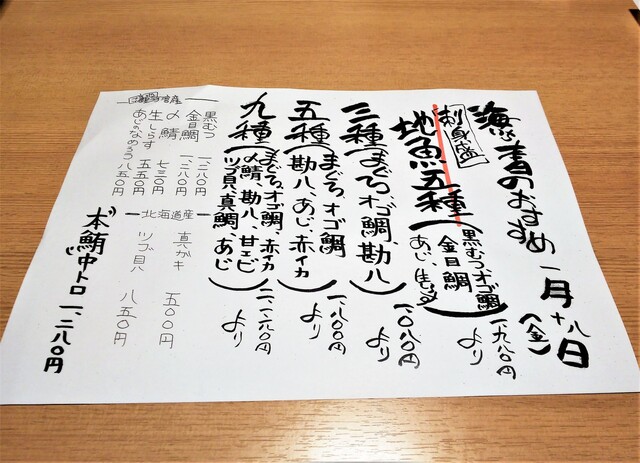 海書のおすすめ 一月十八日(金)
刺身盛
地魚五種(黒むつ、オゴ鯛
金目鯛
あじ、生しらす) 一、九八〇円より
三種(まぐろ、オゴ鯛、勘八) 一、〇八〇円より
五種(まぐろ、オゴ鯛
勘八、あじ、赤イカ) 一、八〇〇円より
九種(まぐろ、オゴ鯛、赤イカ
〆鯖、勘八、甘エビ
ツブ貝、真鯛、あじ) 二、二八〇円より
産
黒むつ 一、二八〇円
金目鯛 一、二八〇円
〆鯖 七三〇円
生しらす 五五〇円
あじのなめろう 八五〇円
北海道産
真ガキ 五〇〇円
ツブ貝 八五〇円
本鮪中トロ 一、二八〇円